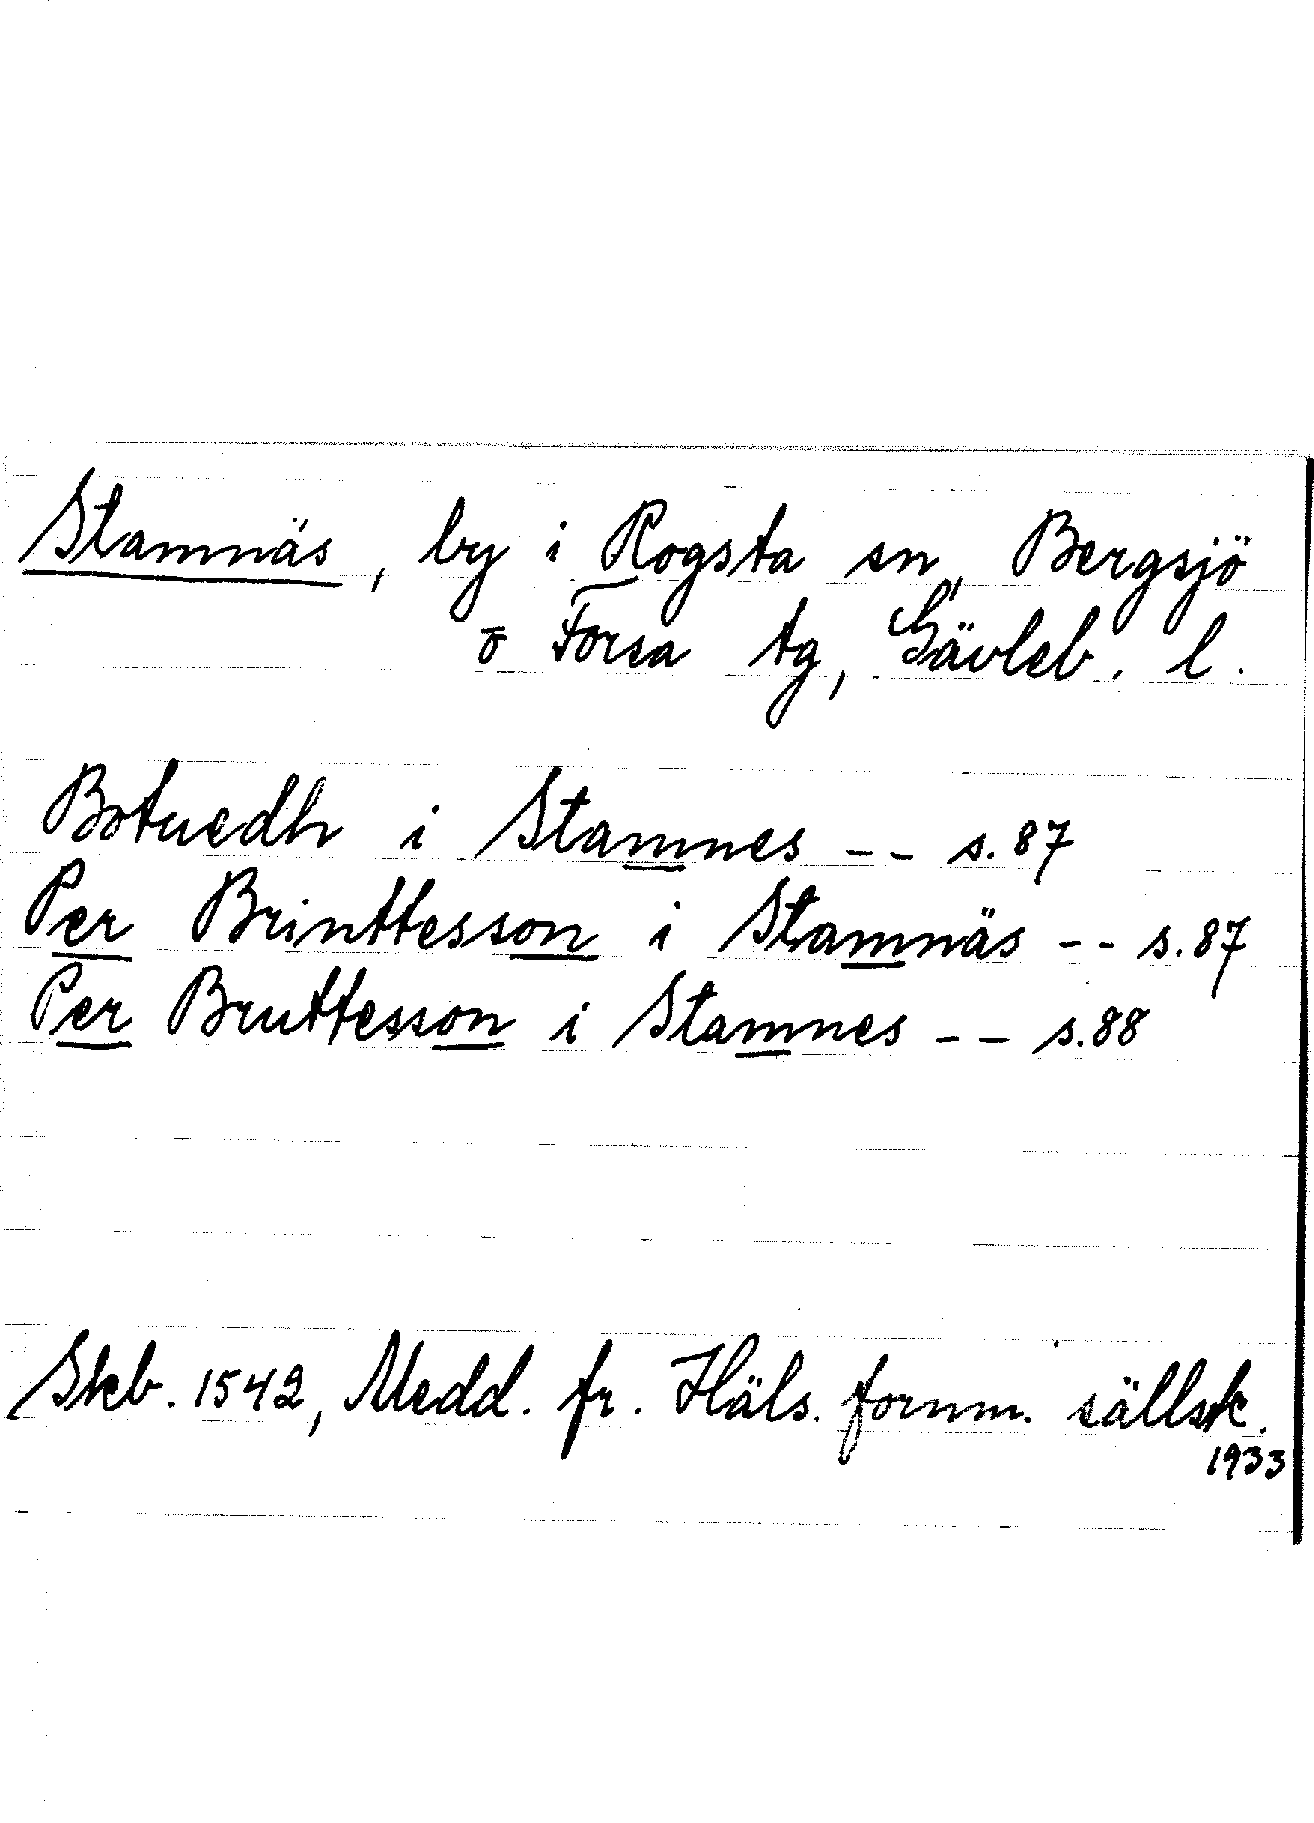 Stamnäs, by i Rogsta sn, Bergsjö
o Forsa tg, Gävleb. l.
Botuedh i Stamnes -- s. 87
Per Brinttesson i Stamnäs -- s. 87
Per Bruttesson i Stamnes -- s. 88
Skb. 1542, Medd. fr. Häls. fornm. sällsk.
1933